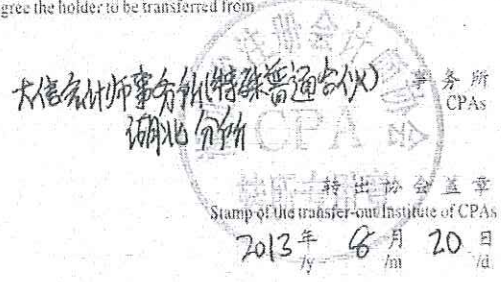 gree the holder to be transferred from
大信会计师事务所(特殊普通合伙) 事务所
CPAs
湖北分所
CPA
转出协会盖章
Stamp of the transfer-out Institute of CPAs
2013年 8月 20日
/y /m /d